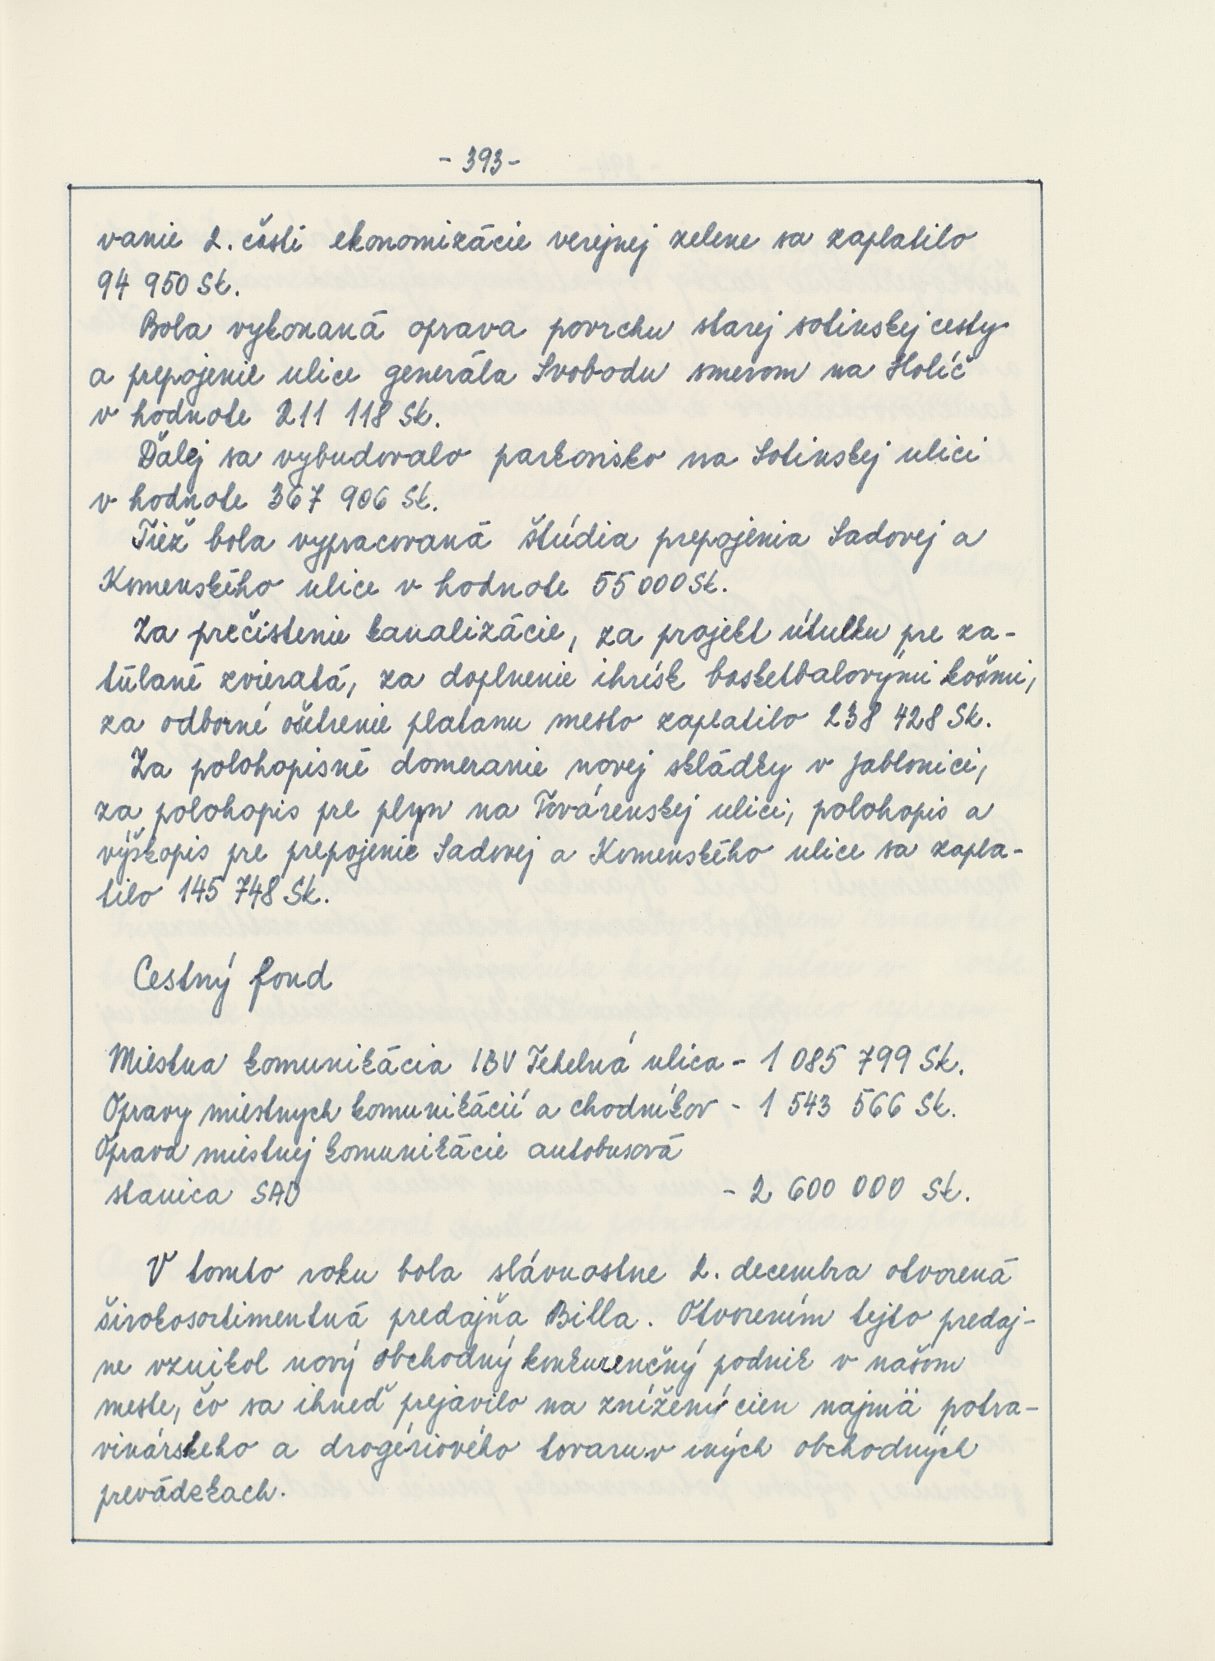 - 393 -
vanie 2. časti ekonomizácie verejnej zelene sa zaplatilo
94 950 Sk.
Bola vykonaná oprava povrchu starej sotinskej cesty
a prepojenie ulice generála Svobodu smerom na Holíč
v hodnote 211 118 Sk.
Ďalej sa vybudovalo parkovisko na Sotinskej ulici
v hodnote 367 906 Sk.
Tiež bola vypracovaná štúdia prepojenia Sadovej a
Komenského ulice v hodnote 55 000 Sk.
Za prečistenie kanalizácie, za projekt útulku pre za-
túlané zvieratá, za doplnenie ihrísk basketbalovými košmi,
za odborné ošetrenie platanu mesto zaplatilo 238 428 Sk.
Za polohopisné domeranie novej skládky v Jablonici,
za polohopis pre plyn na Továrenskej ulici, polohopis a
výškopis pre prepojenie Sadovej a Komenského ulice sa zapla-
tilo 145 748 Sk.
Cestný fond
Miestna komunikácia IBV Tehelná ulica - 1 085 799 Sk.
Opravy miestnych komunikácií a chodníkov - 1 543 566 Sk.
Oprava miestnej komunikácie autobusová
stanica SAD - 2 600 000 Sk.
V tomto roku bola slávnostne 2. decembra otvorená
širokosortimentná predajňa Billa. Otvorením tejto predaj-
ne vznikol nový obchodný konkurenčný podnik v našom
meste, čo sa ihneď prejavilo na znížení cien najmä potra-
vinárskeho a drogériového tovaru v iných obchodných
prevádzkach.